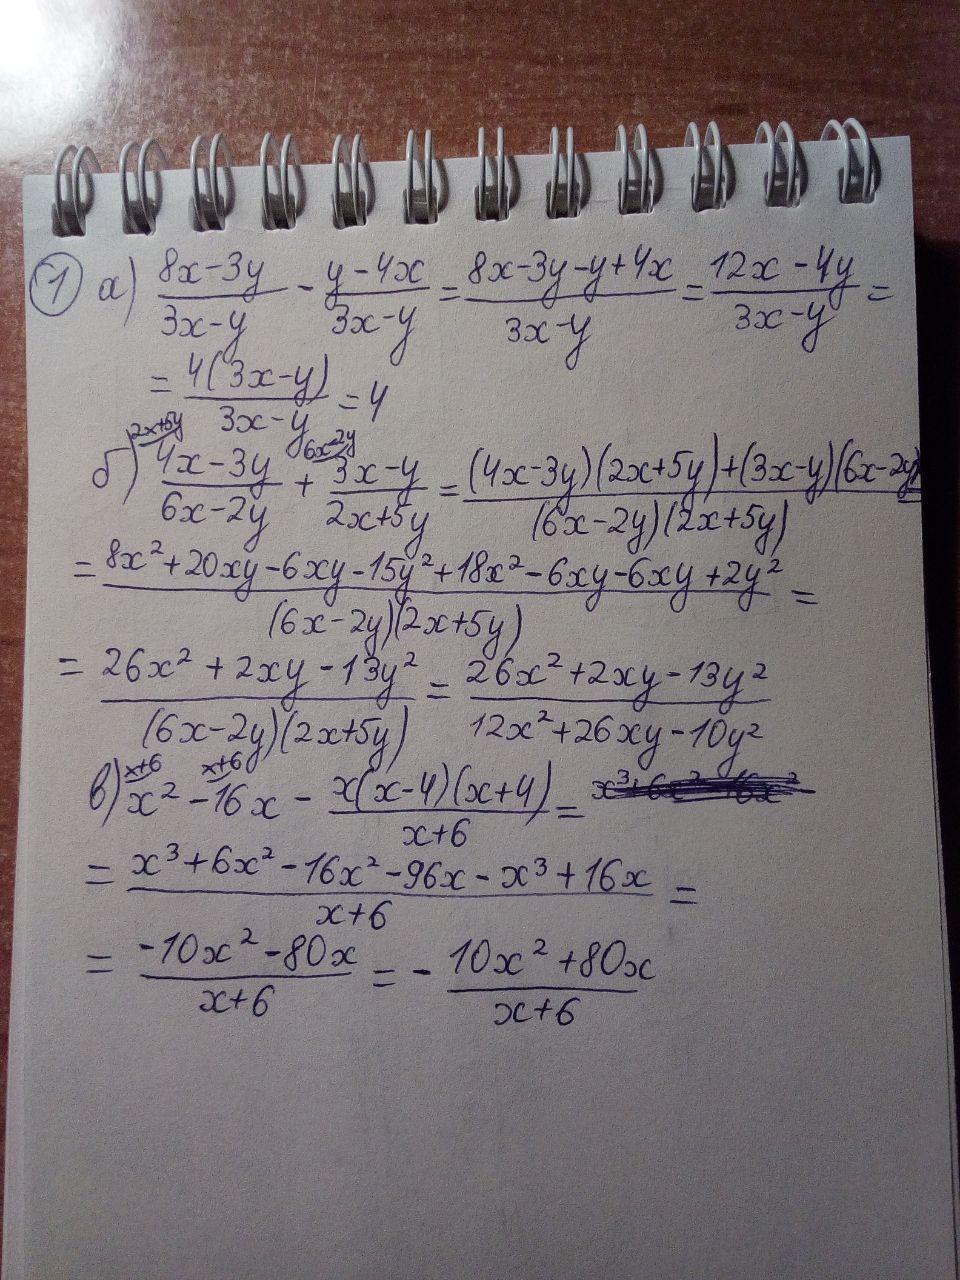 1 а) (8x-3y)/(3x-y) - (y-4x)/(3x-y) = (8x-3y-y+4x)/(3x-y) = (12x-4y)/(3x-y) =
= 4(3x-y)/(3x-y) = 4
2x+5y 6x-2y
б) (4x-3y)/(6x-2y) + (3x-y)/(2x+5y) = ((4x-3y)(2x+5y)+(3x-y)(6x-2y))/((6x-2y)(2x+5y))
= (8x²+20xy-6xy-15y²+18x²-6xy-6xy+2y²)/((6x-2y)(2x+5y)) =
= (26x²+2xy-13y²)/((6x-2y)(2x+5y)) = (26x²+2xy-13y²)/(12x²+26xy-10y²)
x+6 x+6
в) x²-16x - x(x-4)(x+4)/(x+6) =
= (x³+6x²-16x²-96x-x³+16x)/(x+6) =
= (-10x²-80x)/(x+6) = - (10x²+80x)/(x+6)